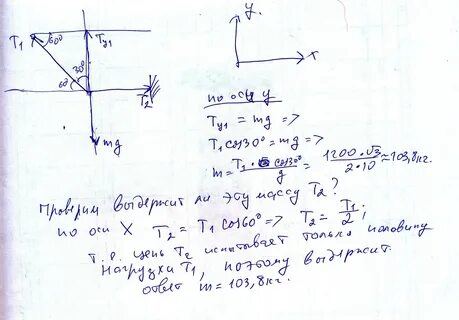 y
T₁ 60° Ty₁
x
30°
60°
T₂
mg
по оси y
Ty₁ = mg =>
T₁ cos30° = mg =>
m = T₁ · cos30° / g = 1200 · √3 / 2 · 10 ≈ 103,8кг.
Проверим выдержит ли эту массу T₂?
по оси X T₂ = T₁ cos60° => T₂ = T₁/2;
т.е. цепь T₂ испытывает только половину
нагрузки T₁, поэтому выдержит.
ответ m = 103,8кг.